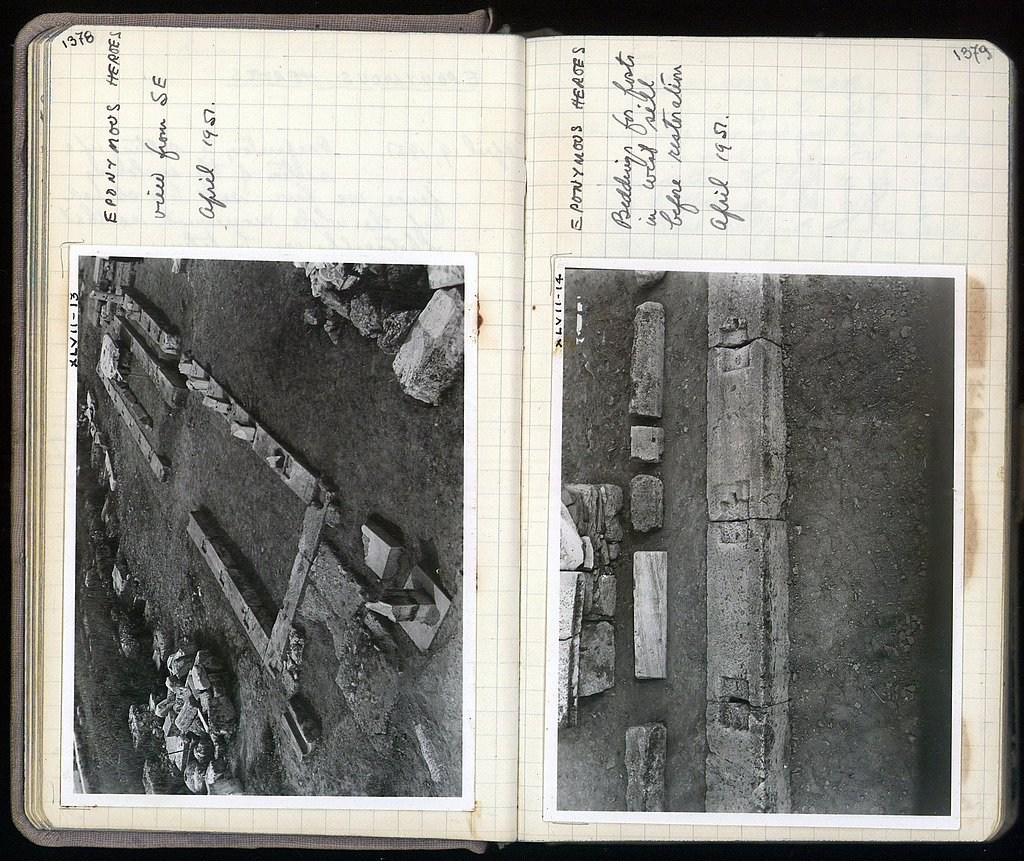 1378
EPONYMOUS HEROES
view from SE
April 1951.
XLVII-13
1379
EPONYMOUS HEROES
Beddings for posts
in west sill
before restoration
April 1951.
XLVII-14